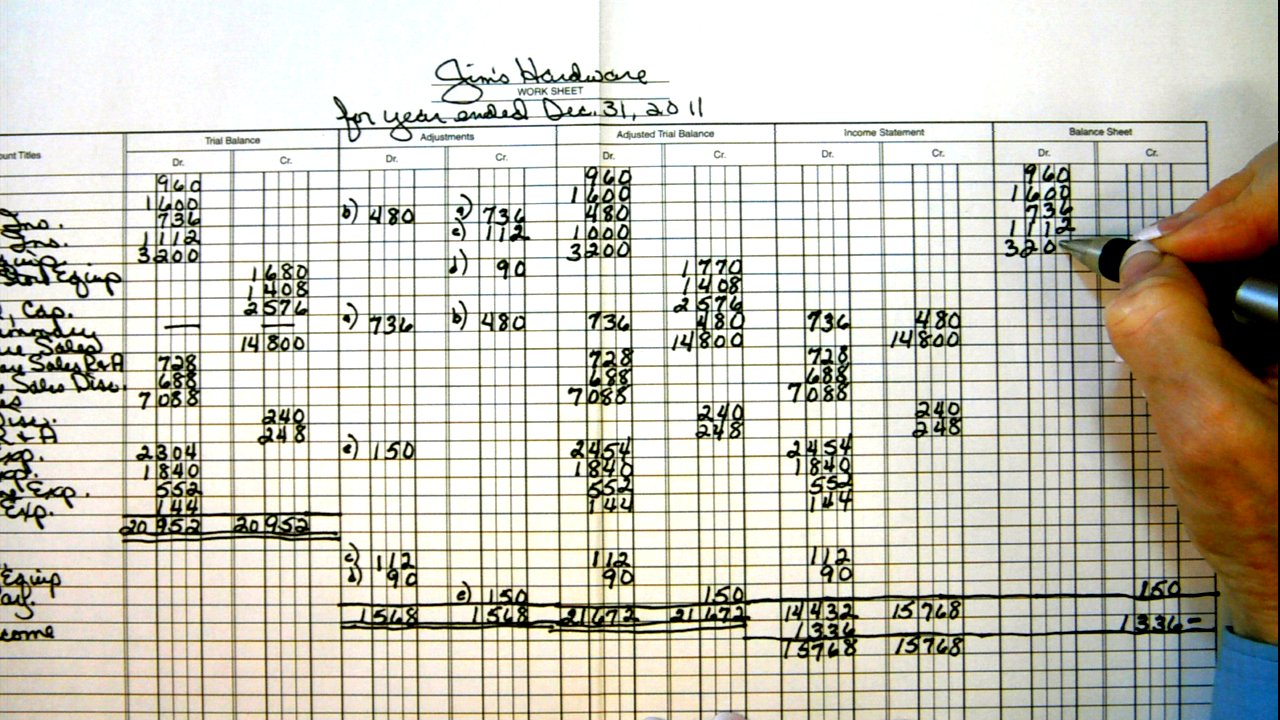 Jim's Hardware
WORK SHEET
for year ended Dec. 31, 2011
Trial Balance Adjustments Adjusted Trial Balance Income Statement Balance Sheet
unt Titles Dr. Cr. Dr. Cr. Dr. Cr. Dr. Cr. Dr. Cr.
960 960 960
1600 1600 1600
Ins. 736 b) 480 a) 736 480 736
Ins. 1112 c) 112 1000 1112
Equip. 3200 3200 320
Store Equip 1680 d) 90 1770
1408 1408
, Cap. 2576 2576
— — a) 736 b) 480 736 480 736 480
Sales 14800 14800 14800
Sales R+A 728 728 728
Sales Disc. 688 688 688
7088 7088 7088
Disc. 240 240 240
R+A 248 248 248
Exp. 2304 e) 150 2454 2454
Exp. 1840 1840 1840
Exp. 552 552 552
Exp. 144 144 144
20952 20952
c) 112 112 112
Equip d) 90 90 90
Pay. e) 150 150 150
1568 1568 21672 21672 14432 15768
come 1336 1336-
15768 15768